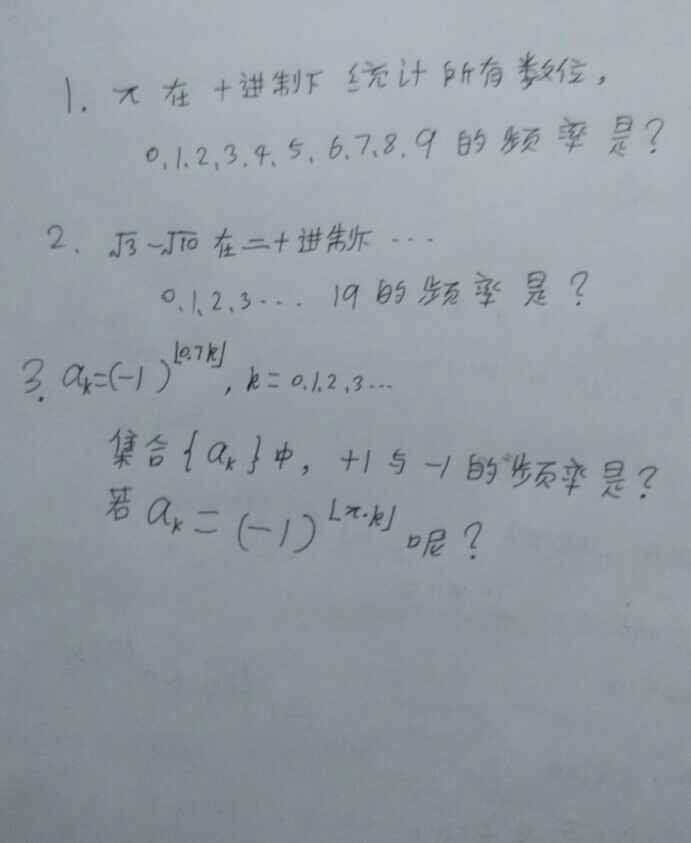 1. π 在 十进制下 统计所有数位,
0.1.2.3.4.5.6.7.8.9 的频率是?
2. √3-√10 在二十进制下 …
0.1.2.3… 19 的频率是?
3. aₖ=(-1)^⌊0.7k⌋, k=0.1.2.3…
集合{aₖ}中, +1与-1的频率是?
若 aₖ=(-1)^⌊x·k⌋ 呢?